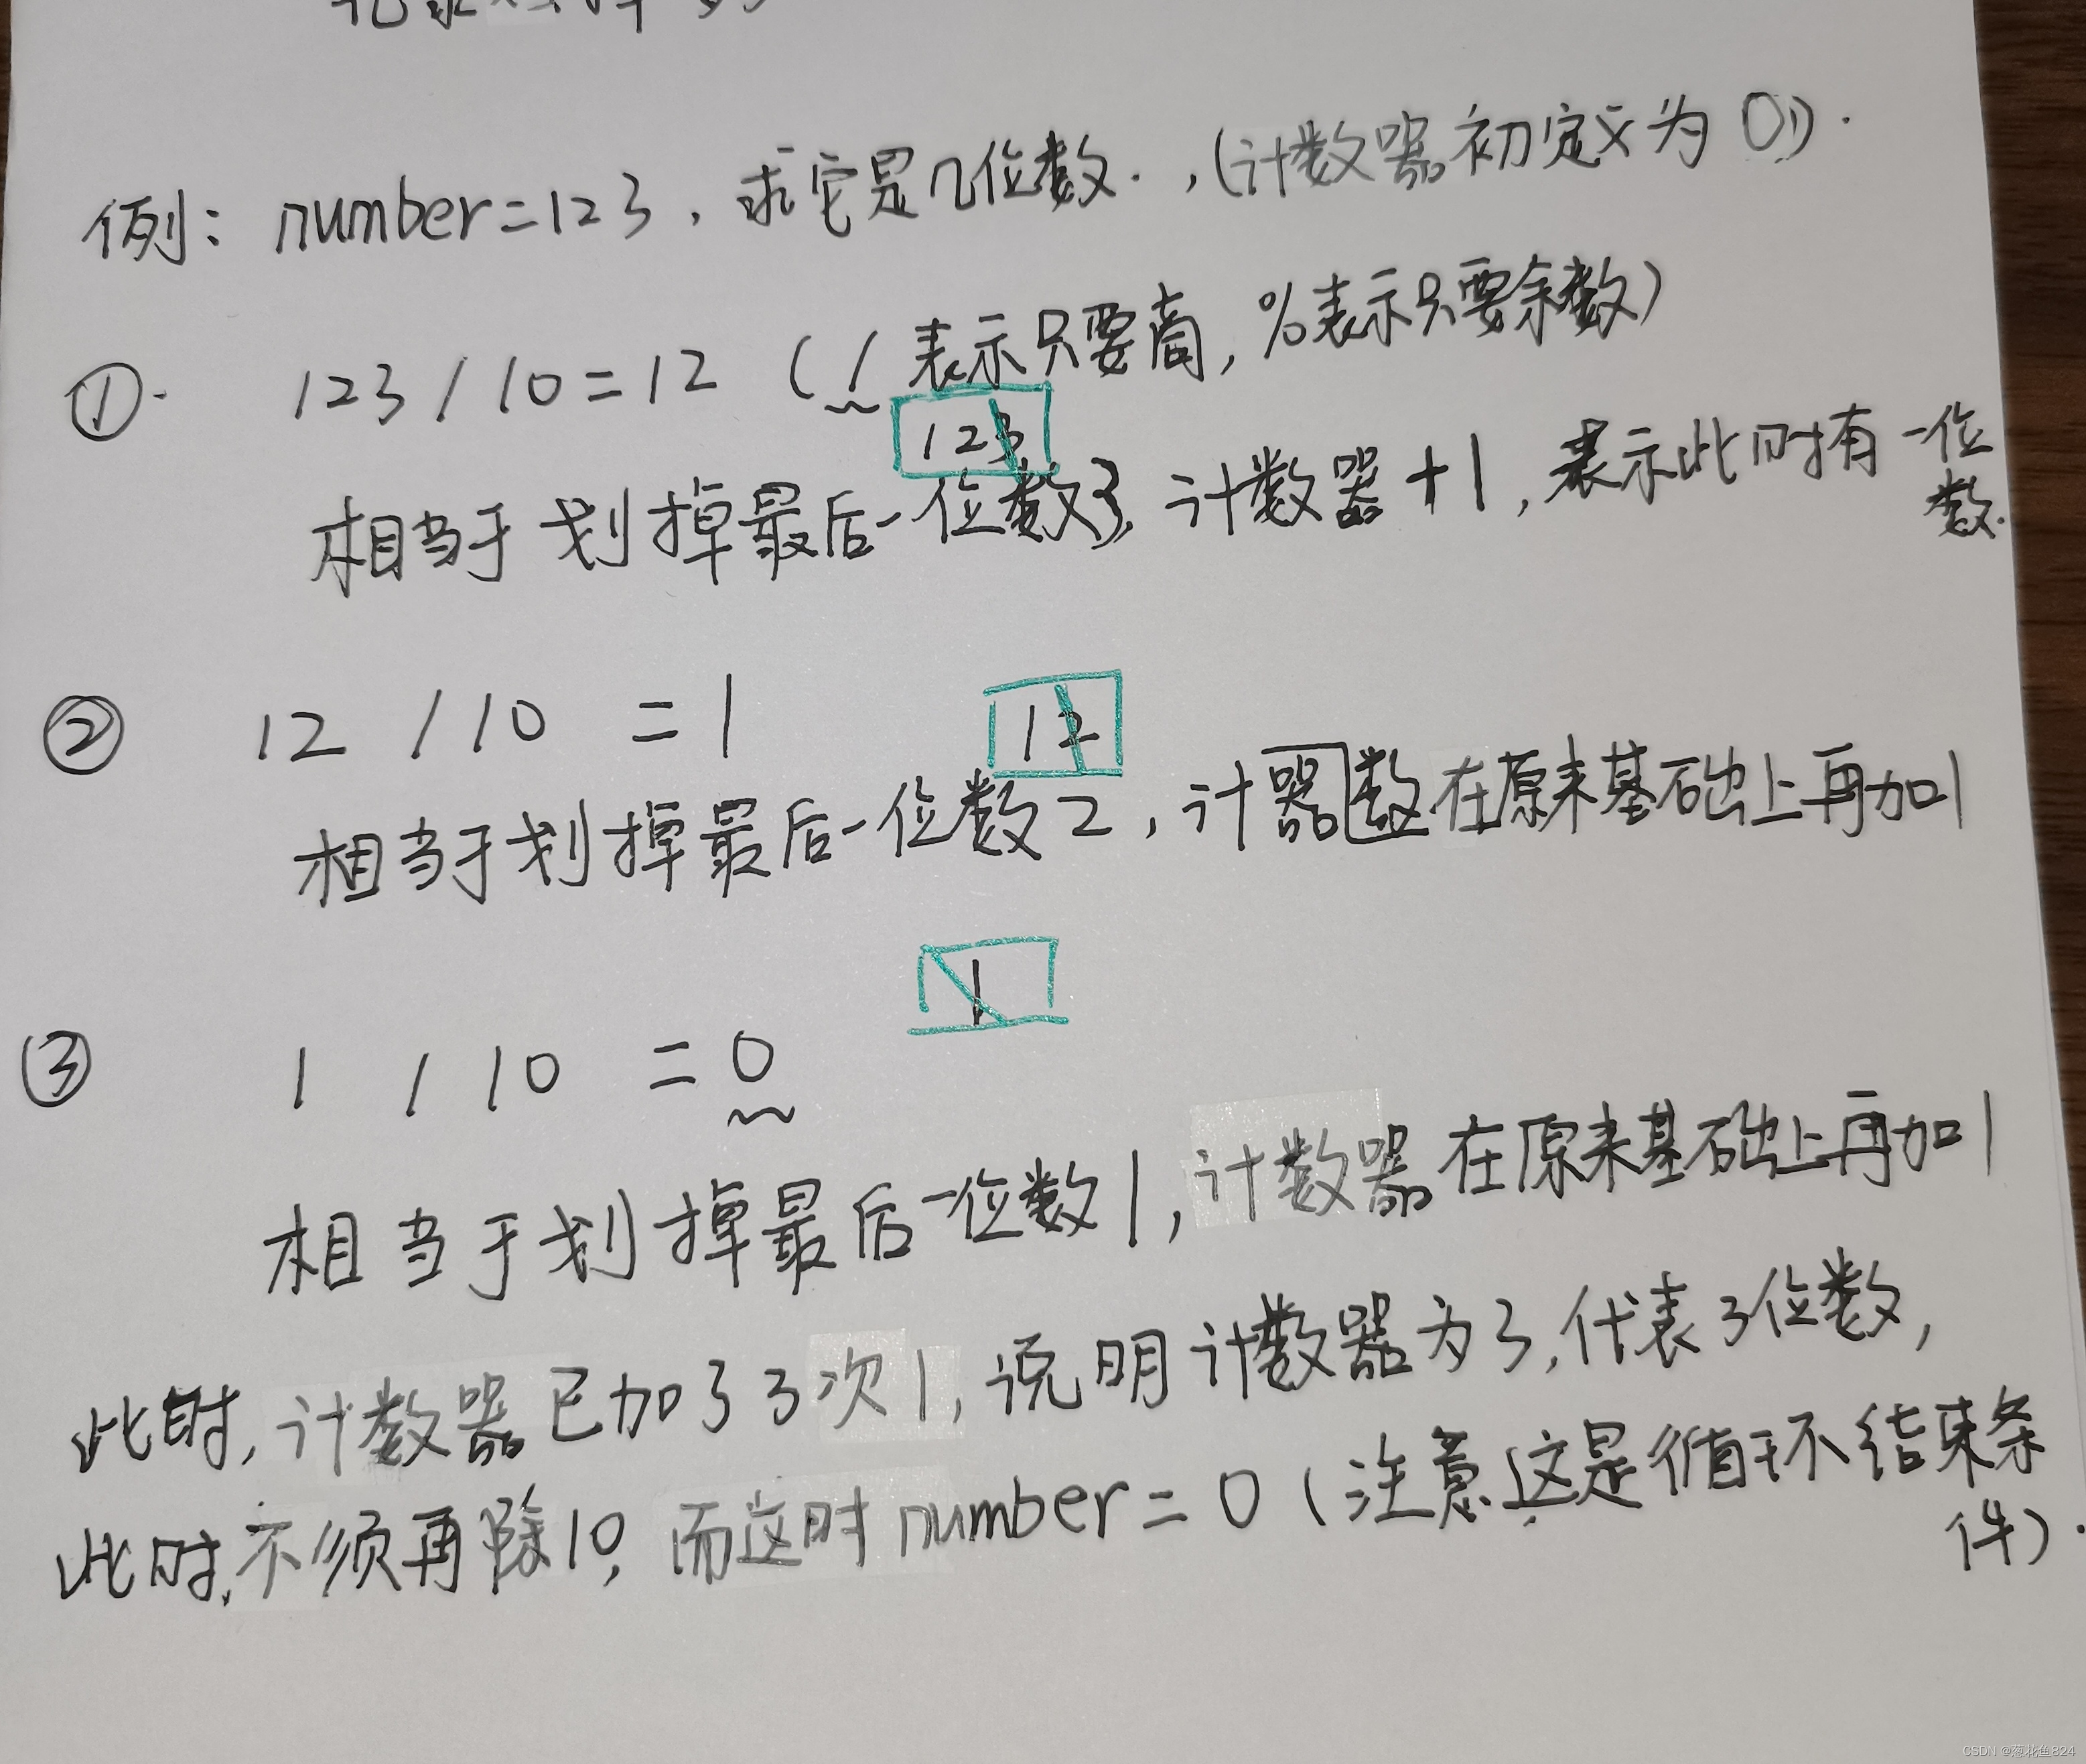 例：number=123，求它是几位数.，(计数器初定义为0)).
①. 123/10=12 (/表示只要商，%表示只要余数)
123
相当于划掉最后一位数3，计数器+1，表示此时有一位数.
② 12/10=1
12
相当于划掉最后一位数2，计器数在原来基础上再加1
1
③ 1/10=0
相当于划掉最后一位数1，计数器在原来基础上再加1
此时，计数器已加了3次1，说明计数器为3，代表3位数，
此时，不须再除10，而这时number=0(注意这是循环结束条件).
CSDN @葱花鱼824